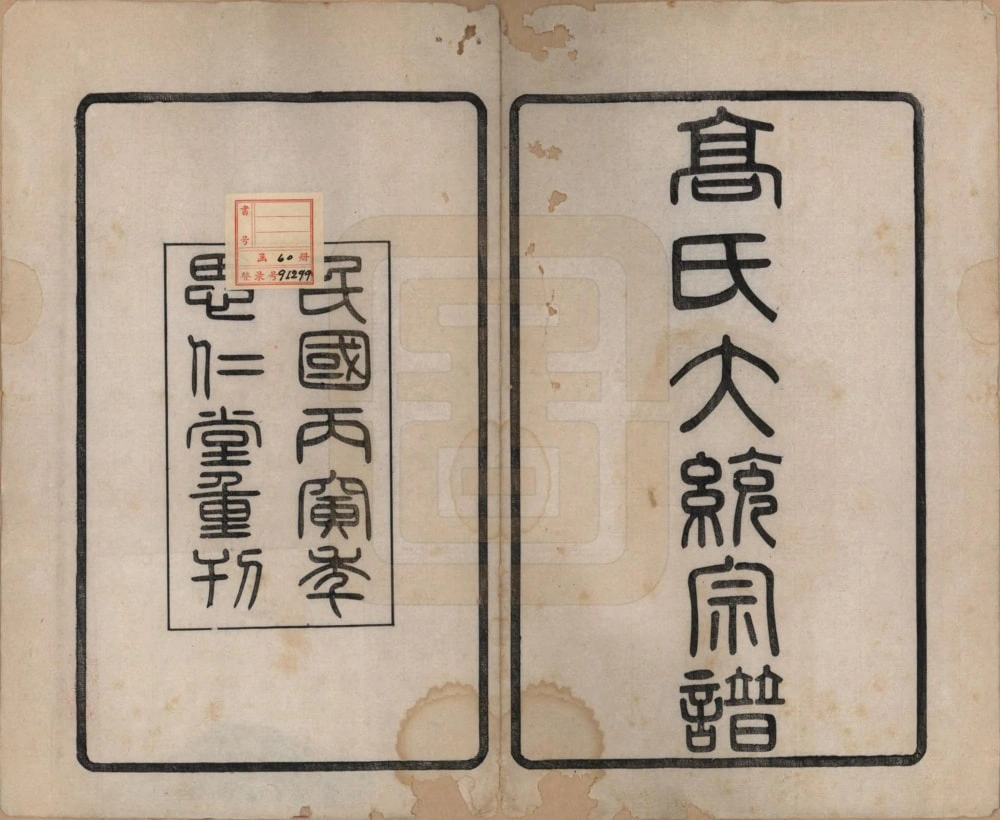 高氏大統宗譜
民國丙寅年
思仁堂重刊
書號
函 60 册
登录号 91299